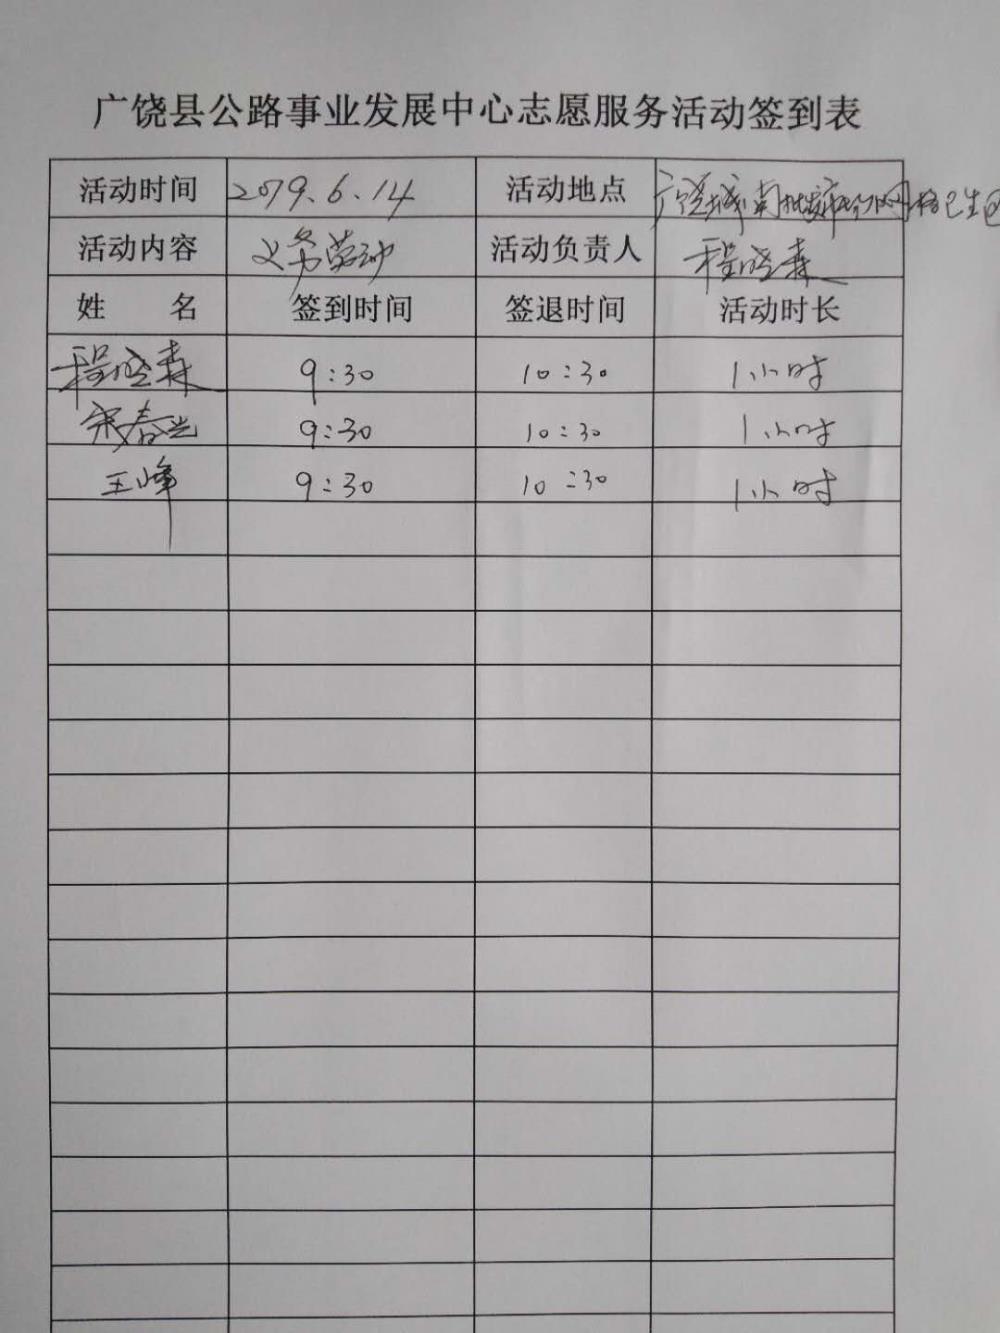 广饶县公路事业发展中心志愿服务活动签到表
活动时间 2019.6.14 活动地点 广饶城南批发市场
活动内容 义务劳动 活动负责人 程晓森
姓 名 签到时间 签退时间 活动时长
程晓森 9:30 10:30 1小时
宋春兰 9:30 10:30 1小时
王峰 9:30 10:30 1小时